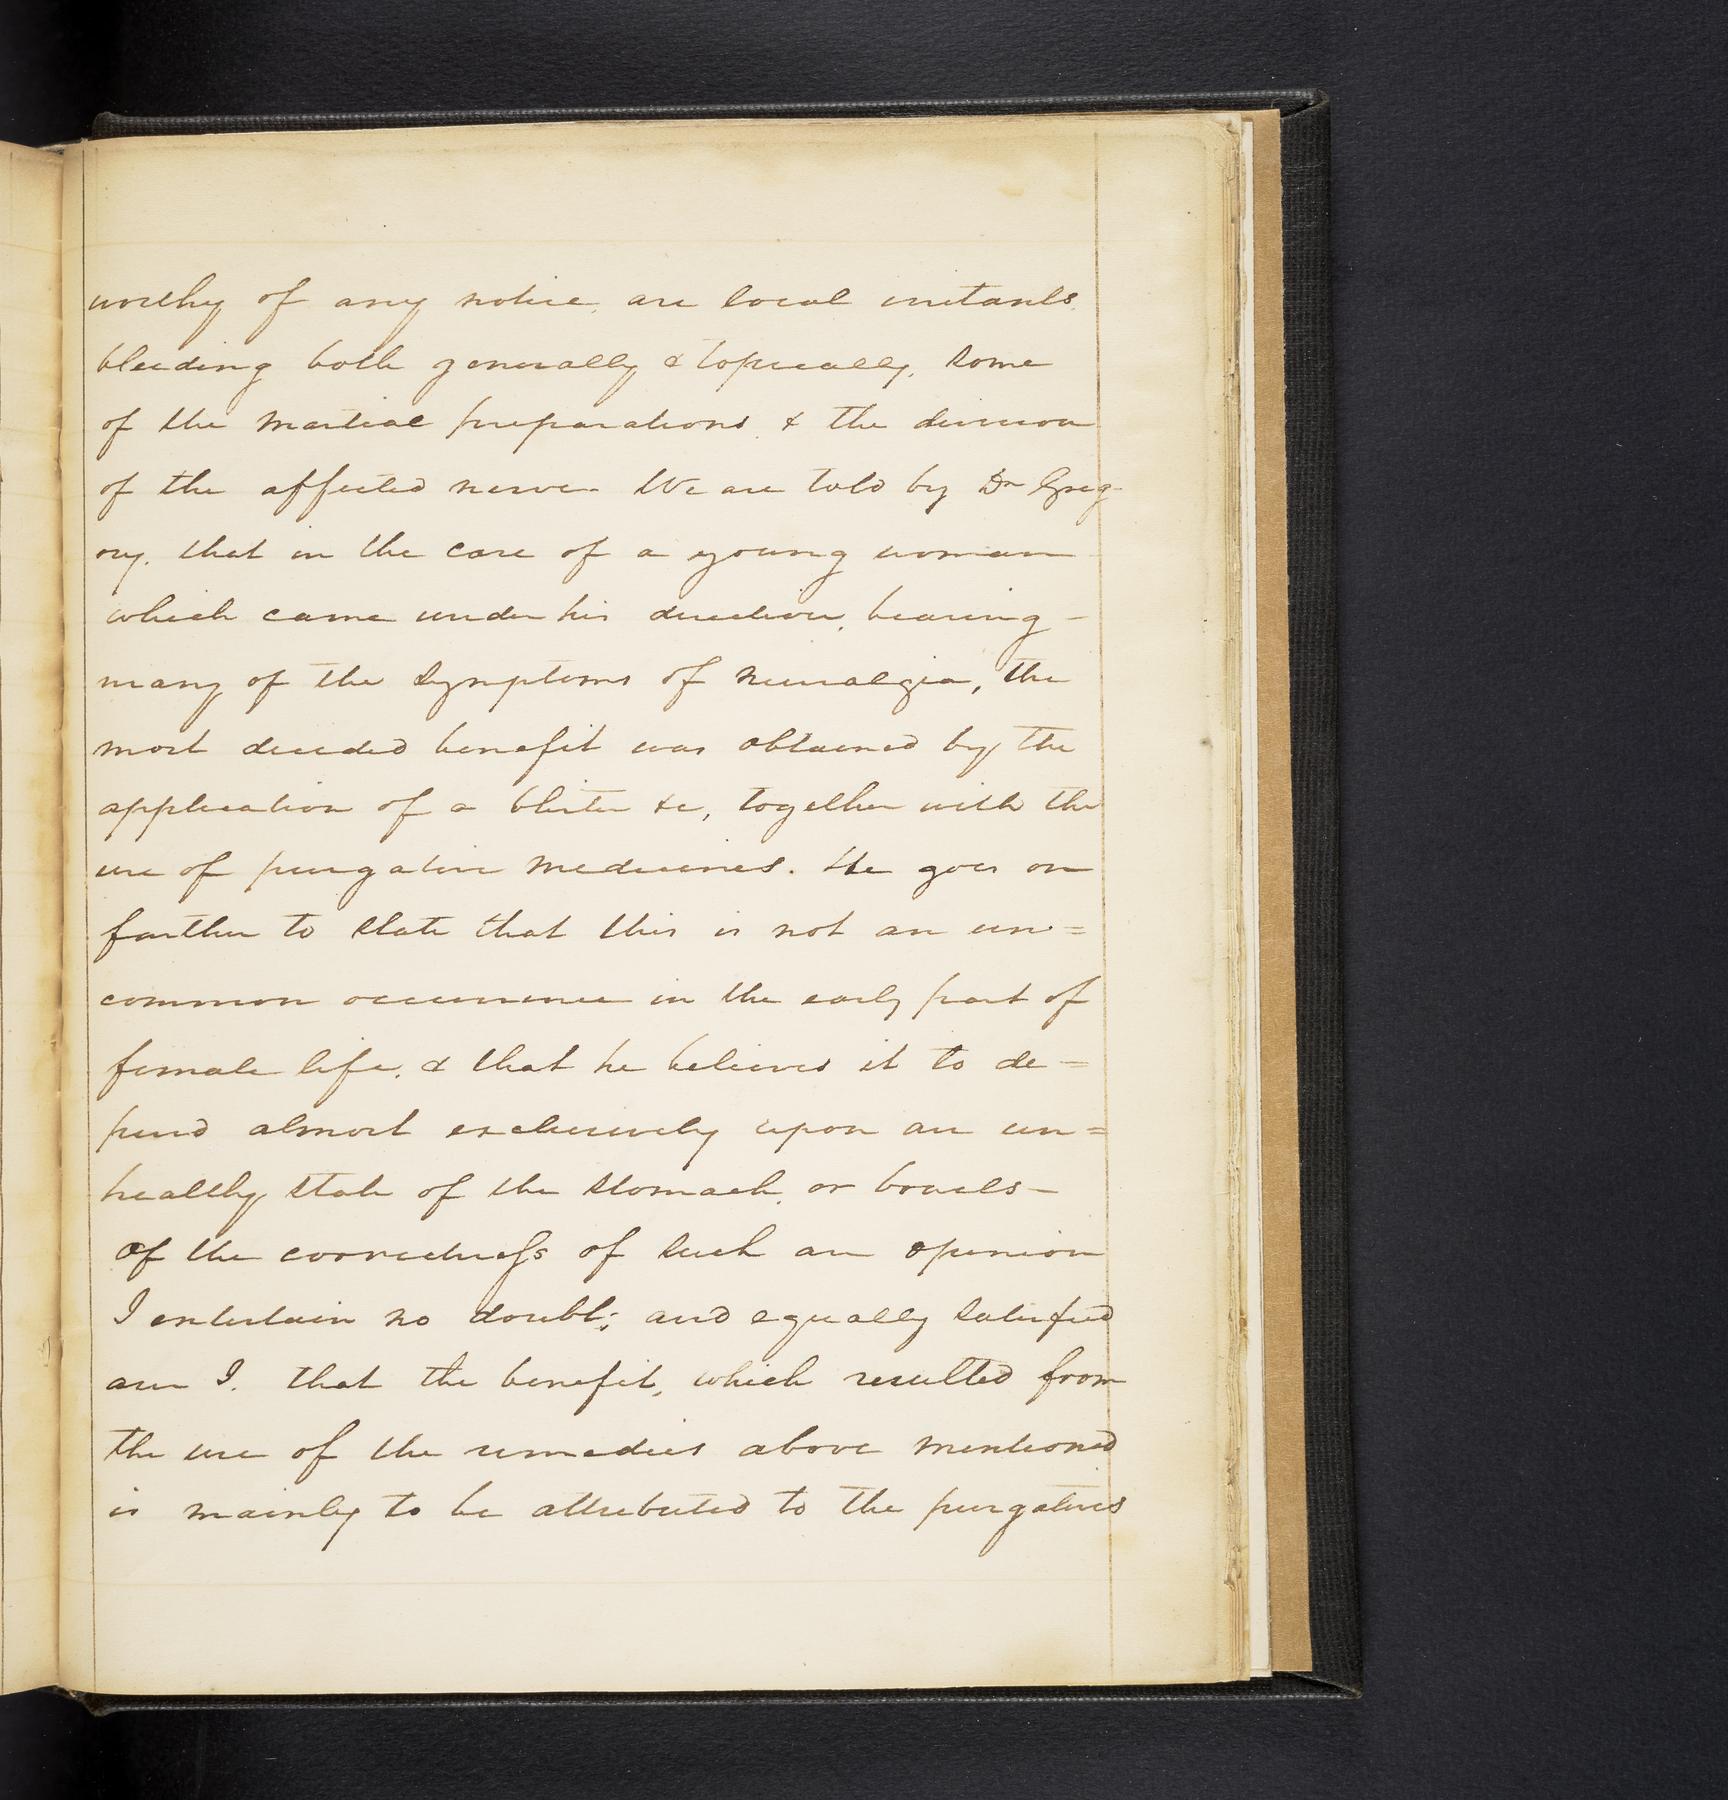 worthy of any notice, are local irritants,
bleeding both generally & topically, some
of the martial preparations, & the division
of the affected nerve. We are told by Dr Greg-
ory, that in the case of a young woman
which came under his direction, bearing -
many of the symptoms of neuralgia, the
most decided benefit was obtained by the
application of a blister &c, together with the
use of purgative medicines. He goes on
farther to state that this is not an un=
common occurrence in the early part of
female life, & that he believes it to de=
pend almost exclusively upon an un=
healthy state of the stomach, or bowels -
Of the correctness of such an opinion
I entertain no doubt; and equally satisfied
am I, that the benefit, which resulted from
the use of the remedies above mentioned
is mainly to be attributed to the purgatives